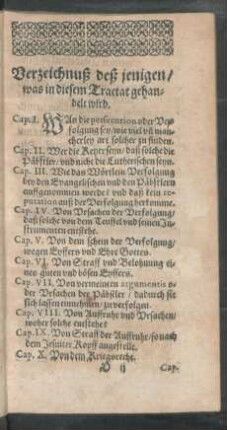 Verzeichnuß deß jenigen/
was in diesem Tractat gehan-
delt wird.
Cap. I. WAn die persecution oder Ver-
folgung sey/ wie viel vñ man-
cherley art solcher zu finden.
Cap. II. Wer die Ketzer seyn/ daß solche die
Päbstler/ vnd nicht die Lutherischen seyn.
Cap. III. Wie das Wörtlein Verfolgung
bey den Evangelischen vnd den Päbstlern
auffgenommen werde/ vnd daß kein re-
putation auß der Verfolgung herkomme.
Cap. IV. Von Vrsachen der Verfolgung/
daß solche von dem Teuffel vnd seinen In-
strumenten entstehe.
Cap. V. Von dem schein der Verfolgung/
wegen Eyffers vnd Ehre Gottes.
Cap. VI. Von Straff vnd Belohnung ei-
nes guten vnd bösen Eyffers.
Cap. VII. Von vermeinten argumentis o-
der Vrsachen der Päbstler/ dadurch sie
sich lassen einnehmen/ zu verfolgen.
Cap. VIII. Von Auffruhr vnd Vrsachen/
woher solche entstehet
Cap. IX. Von Straff der Auffruhr/ so nach
dem Jesuiter Kopff angestellt.
Cap. X. Von dem Kriegsrecht.
ij Cap.